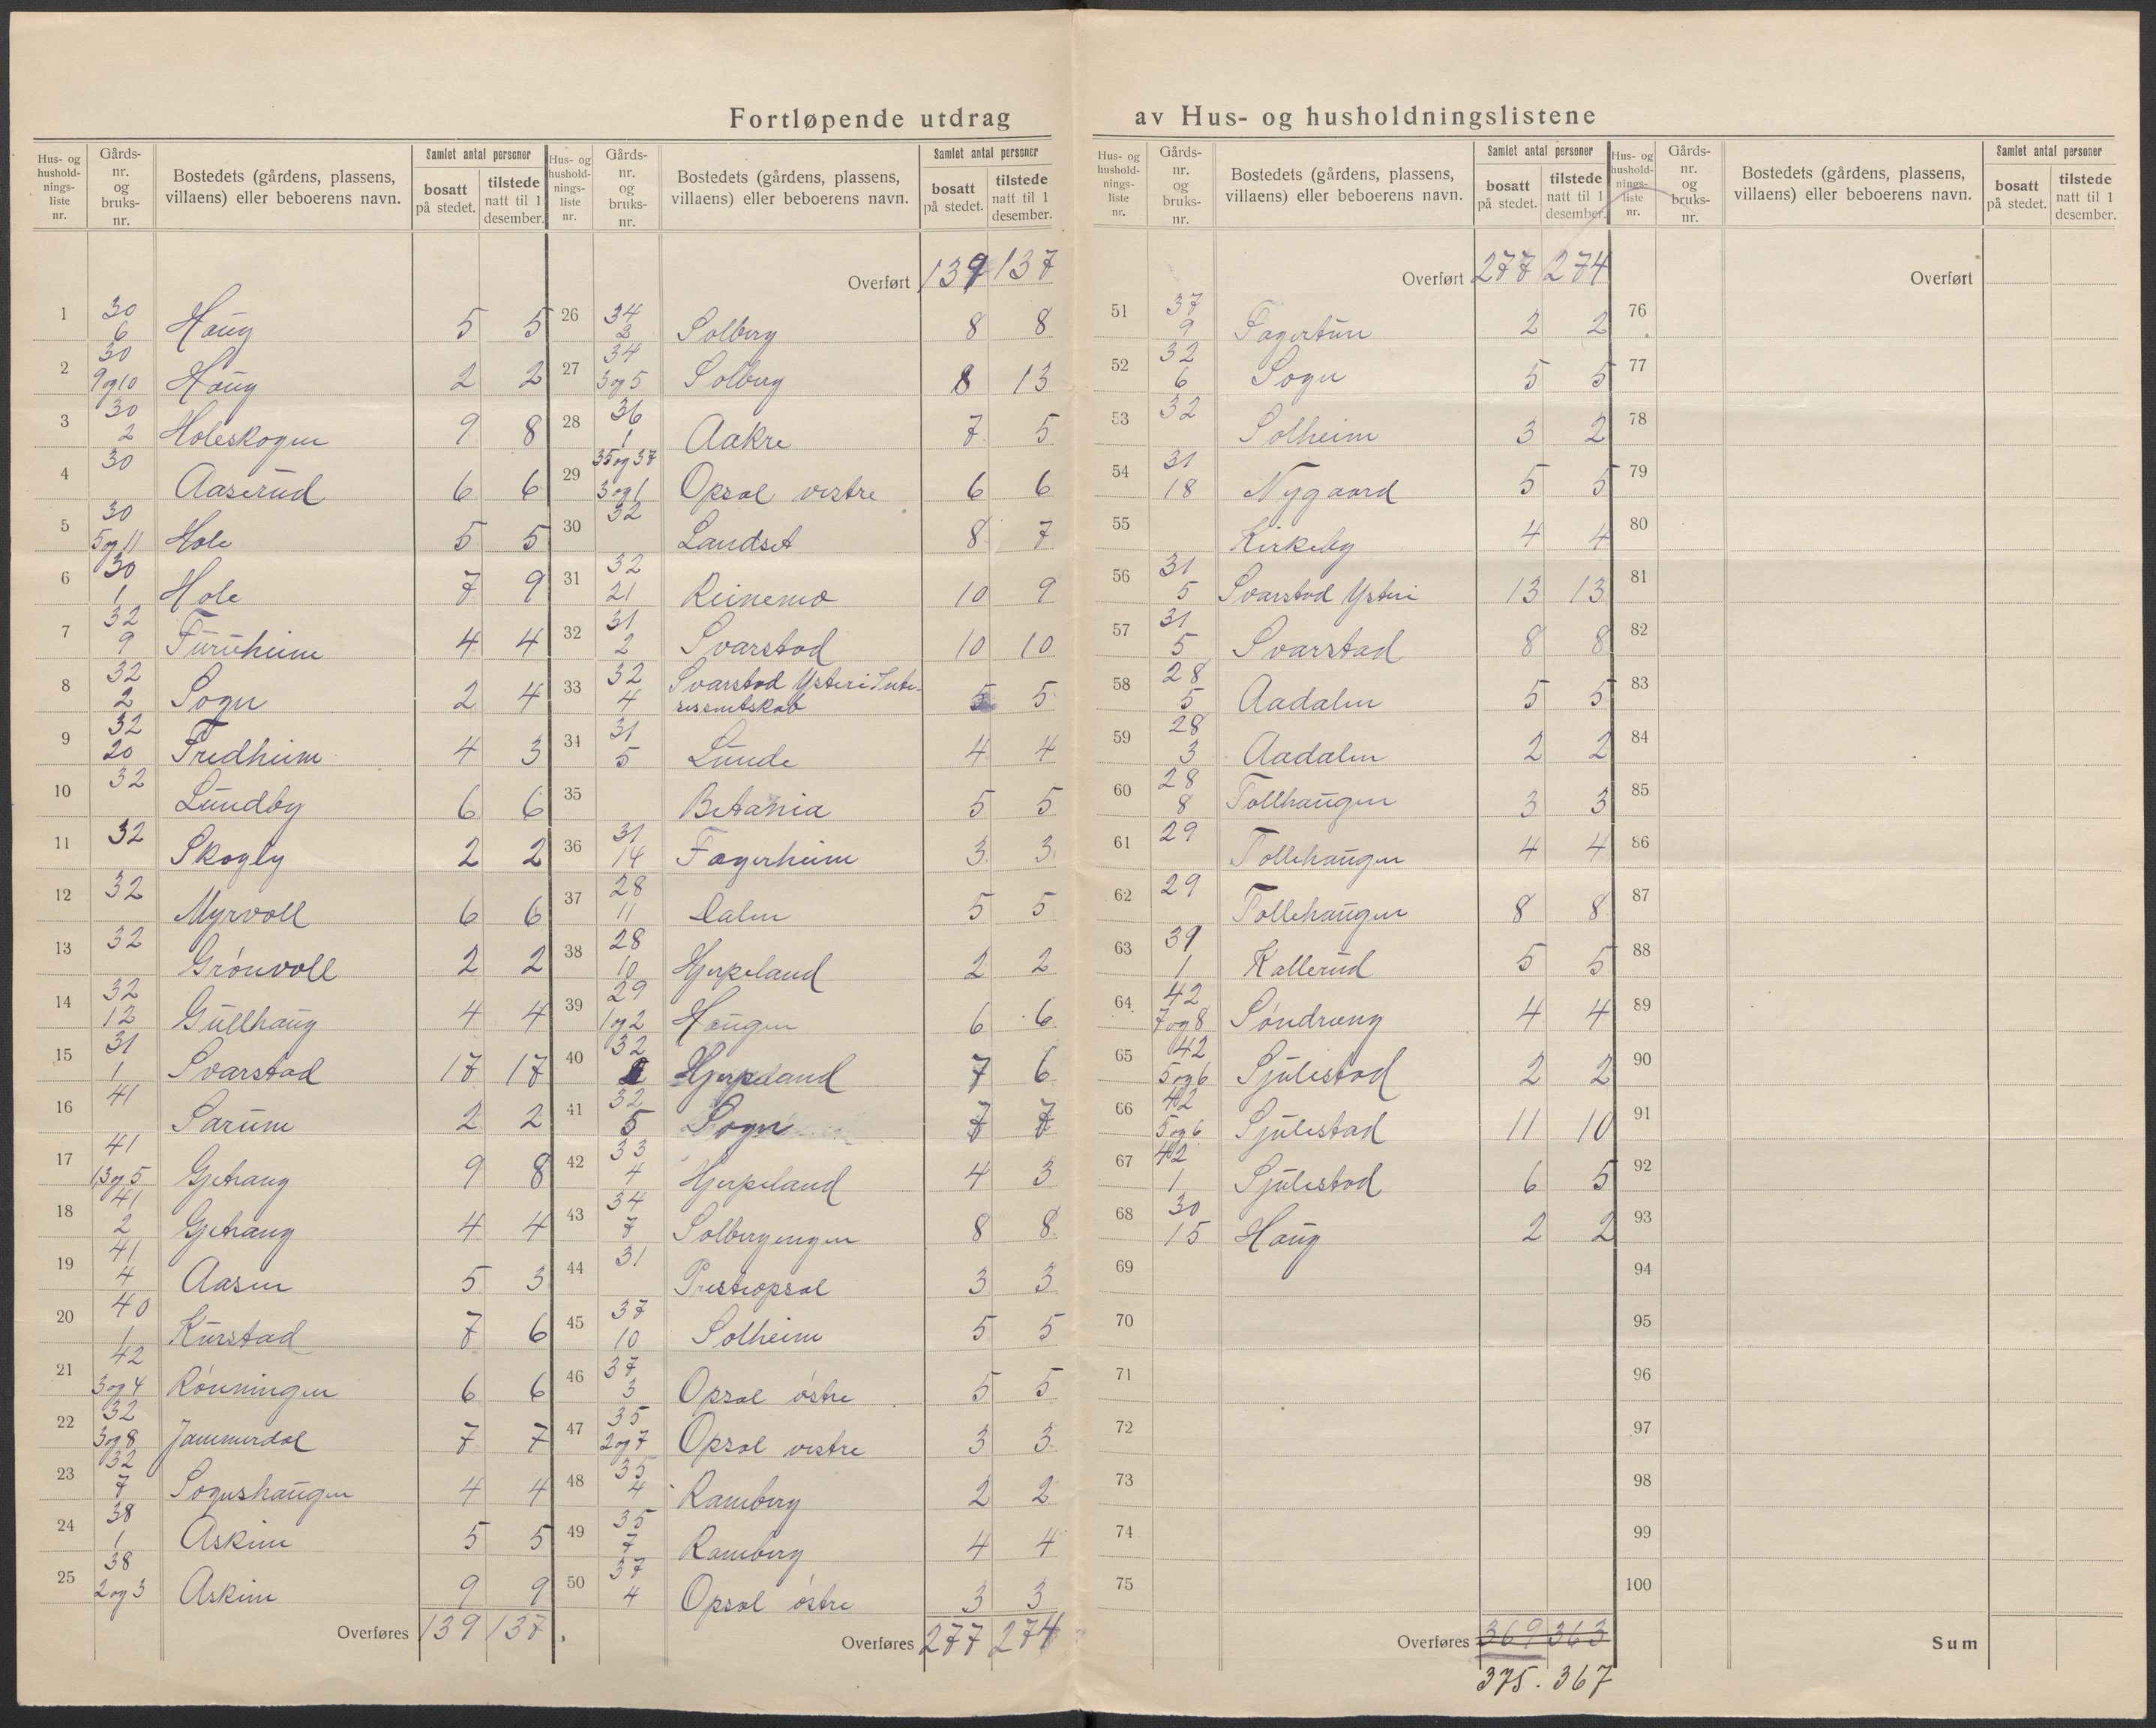 Fortløpende utdrag av Hus- og husholdningslistene
Hus- og husholdningsliste nr. Gårds-nr. og bruks-nr. Bostedets (gårdens, plassens, villaens) eller beboerens navn. Samlet antal personer bosatt på stedet. tilstede natt til 1 desember.
1 30 6 Haug 5 5
2 30 9 og 10 Haug 2 2
3 30 2 Holeskogen 9 8
4 30 Aaserud 6 6
5 30 5 og 11 Hole 5 5
6 30 1 Hole 7 9
7 32 9 Furuheim 4 4
8 32 2 Sogn 2 4
9 32 20 Fredheim 4 3
10 32 Lundby 6 6
11 32 Skogly 2 2
12 32 Myrvoll 6 6
13 32 Grönvoll 2 2
14 32 12 Gullhaug 4 4
15 31 1 Svarstad 17 17
16 41 Sarum 2 2
17 41 1,3 og 5 Gjetrang 9 8
18 41 2 Gjetrang 4 4
19 41 4 Aasen 5 3
20 40 1 Kurstad 7 6
21 42 3 og 4 Rönningen 6 6
22 32 3 og 8 Jammerdal 7 7
23 32 7 Sogneshaugen 4 4
24 38 1 Askim 5 5
25 38 2 og 3 Askim 9 9
Overføres 139 137
Hus- og husholdningsliste nr. Gårds-nr. og bruks-nr. Bostedets (gårdens, plassens, villaens) eller beboerens navn. Samlet antal personer bosatt på stedet. tilstede natt til 1 desember.
Overført 139 137
26 34 2 Solberg 8 8
27 34 3 og 5 Solberg 8 13
28 36 1 Aakre 7 5
29 35 og 37 3 og 1 Opsal vestre 6 6
30 32 Landset 8 7
31 32 21 Reinemo 10 9
32 31 2 Svarstad 10 10
33 32 4 Svarstad Ysteri Inte-
ressentskab 5 5
34 31 5 Lunde 4 4
35 Betania 5 5
36 31 14 Fagerheim 3 3
37 28 11 Dalen 5 5
38 28 10 Hjerpeland 2 2
39 29 1 og 2 Haugen 6 6
40 32 Hjerpeland 7 6
41 32 5 Sogn 7 7
42 33 4 Hjerpeland 4 3
43 34 7 Solbergengen 8 8
44 31 Presteopsal 3 3
45 37 10 Solheim 5 5
46 37 3 Opsal östre 5 5
47 35 2 og 7 Opsal vestre 3 3
48 35 4 Ramberg 2 2
49 35 7 Ramberg 4 4
50 37 4 Opsal östre 3 3
Overføres 277 274
Hus- og husholdningsliste nr. Gårds-nr. og bruks-nr. Bostedets (gårdens, plassens, villaens) eller beboerens navn. Samlet antal personer bosatt på stedet. tilstede natt til 1 desember.
Overført 277 274
51 37 9 Fagertun 2 2
52 32 6 Sogn 5 5
53 32 Solheim 3 2
54 31 18 Nygaard 5 5
55 Kirkeby 4 4
56 31 5 Svarstad Ysteri 13 13
57 31 5 Svarstad 8 8
58 28 5 Aadalen 5 5
59 28 3 Aadalen 2 2
60 28 8 Tollhaugen 3 3
61 29 Tollehaugen 4 4
62 29 Tollehaugen 8 8
63 39 1 Kallerud 5 5
64 42 7 og 8 Söndreng 4 4
65 42 5 og 6 Sjulestad 2 2
66 42 5 og 6 Sjulestad 11 10
67 42 1 Sjulestad 6 5
68 30 15 Haug 2 2
69
70
71
72
73
74
75
Overføres 369 363
375. 367
Hus- og husholdningsliste nr. Gårds-nr. og bruks-nr. Bostedets (gårdens, plassens, villaens) eller beboerens navn. Samlet antal personer bosatt på stedet. tilstede natt til 1 desember.
Overført
76
77
78
79
80
81
82
83
84
85
86
87
88
89
90
91
92
93
94
95
96
97
98
99
100
Sum